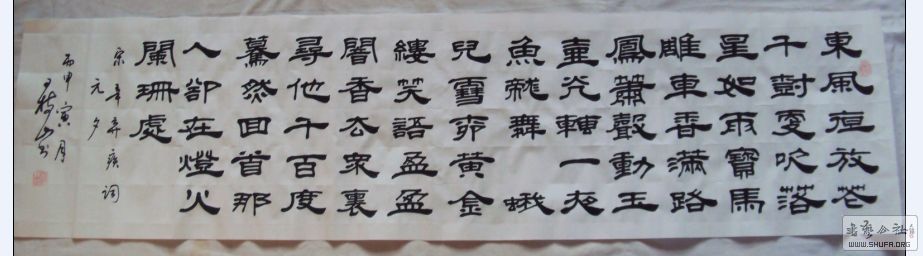 東風夜放花
千對更吹落
星如雨寶馬
雕車香滿路
鳳簫聲動玉
壺光轉一夜
魚龍舞 蛾
兒雪柳黃金
縷笑語盈盈
闇香去眾裏
尋他千百度
驀然回首那
人卻在燈火
闌珊處
宋辛弃疾词
元夕
丙申寅月
书
书艺公社
WWW.SHUFA.ORG